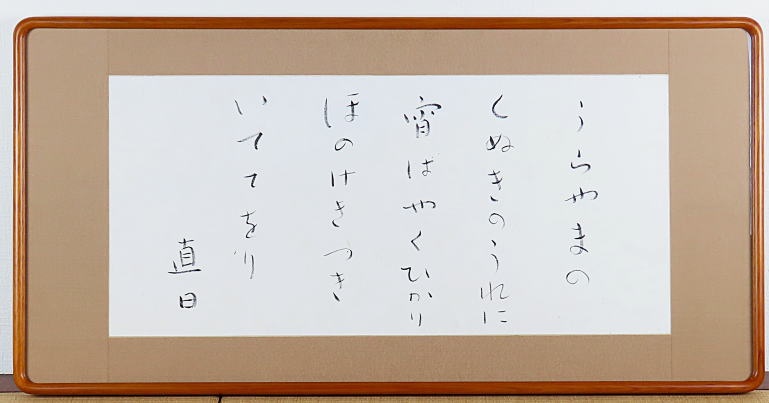 うらやまの
くぬきのうれに
宵はやくひかり
ほのけきつき
いててをり
直日